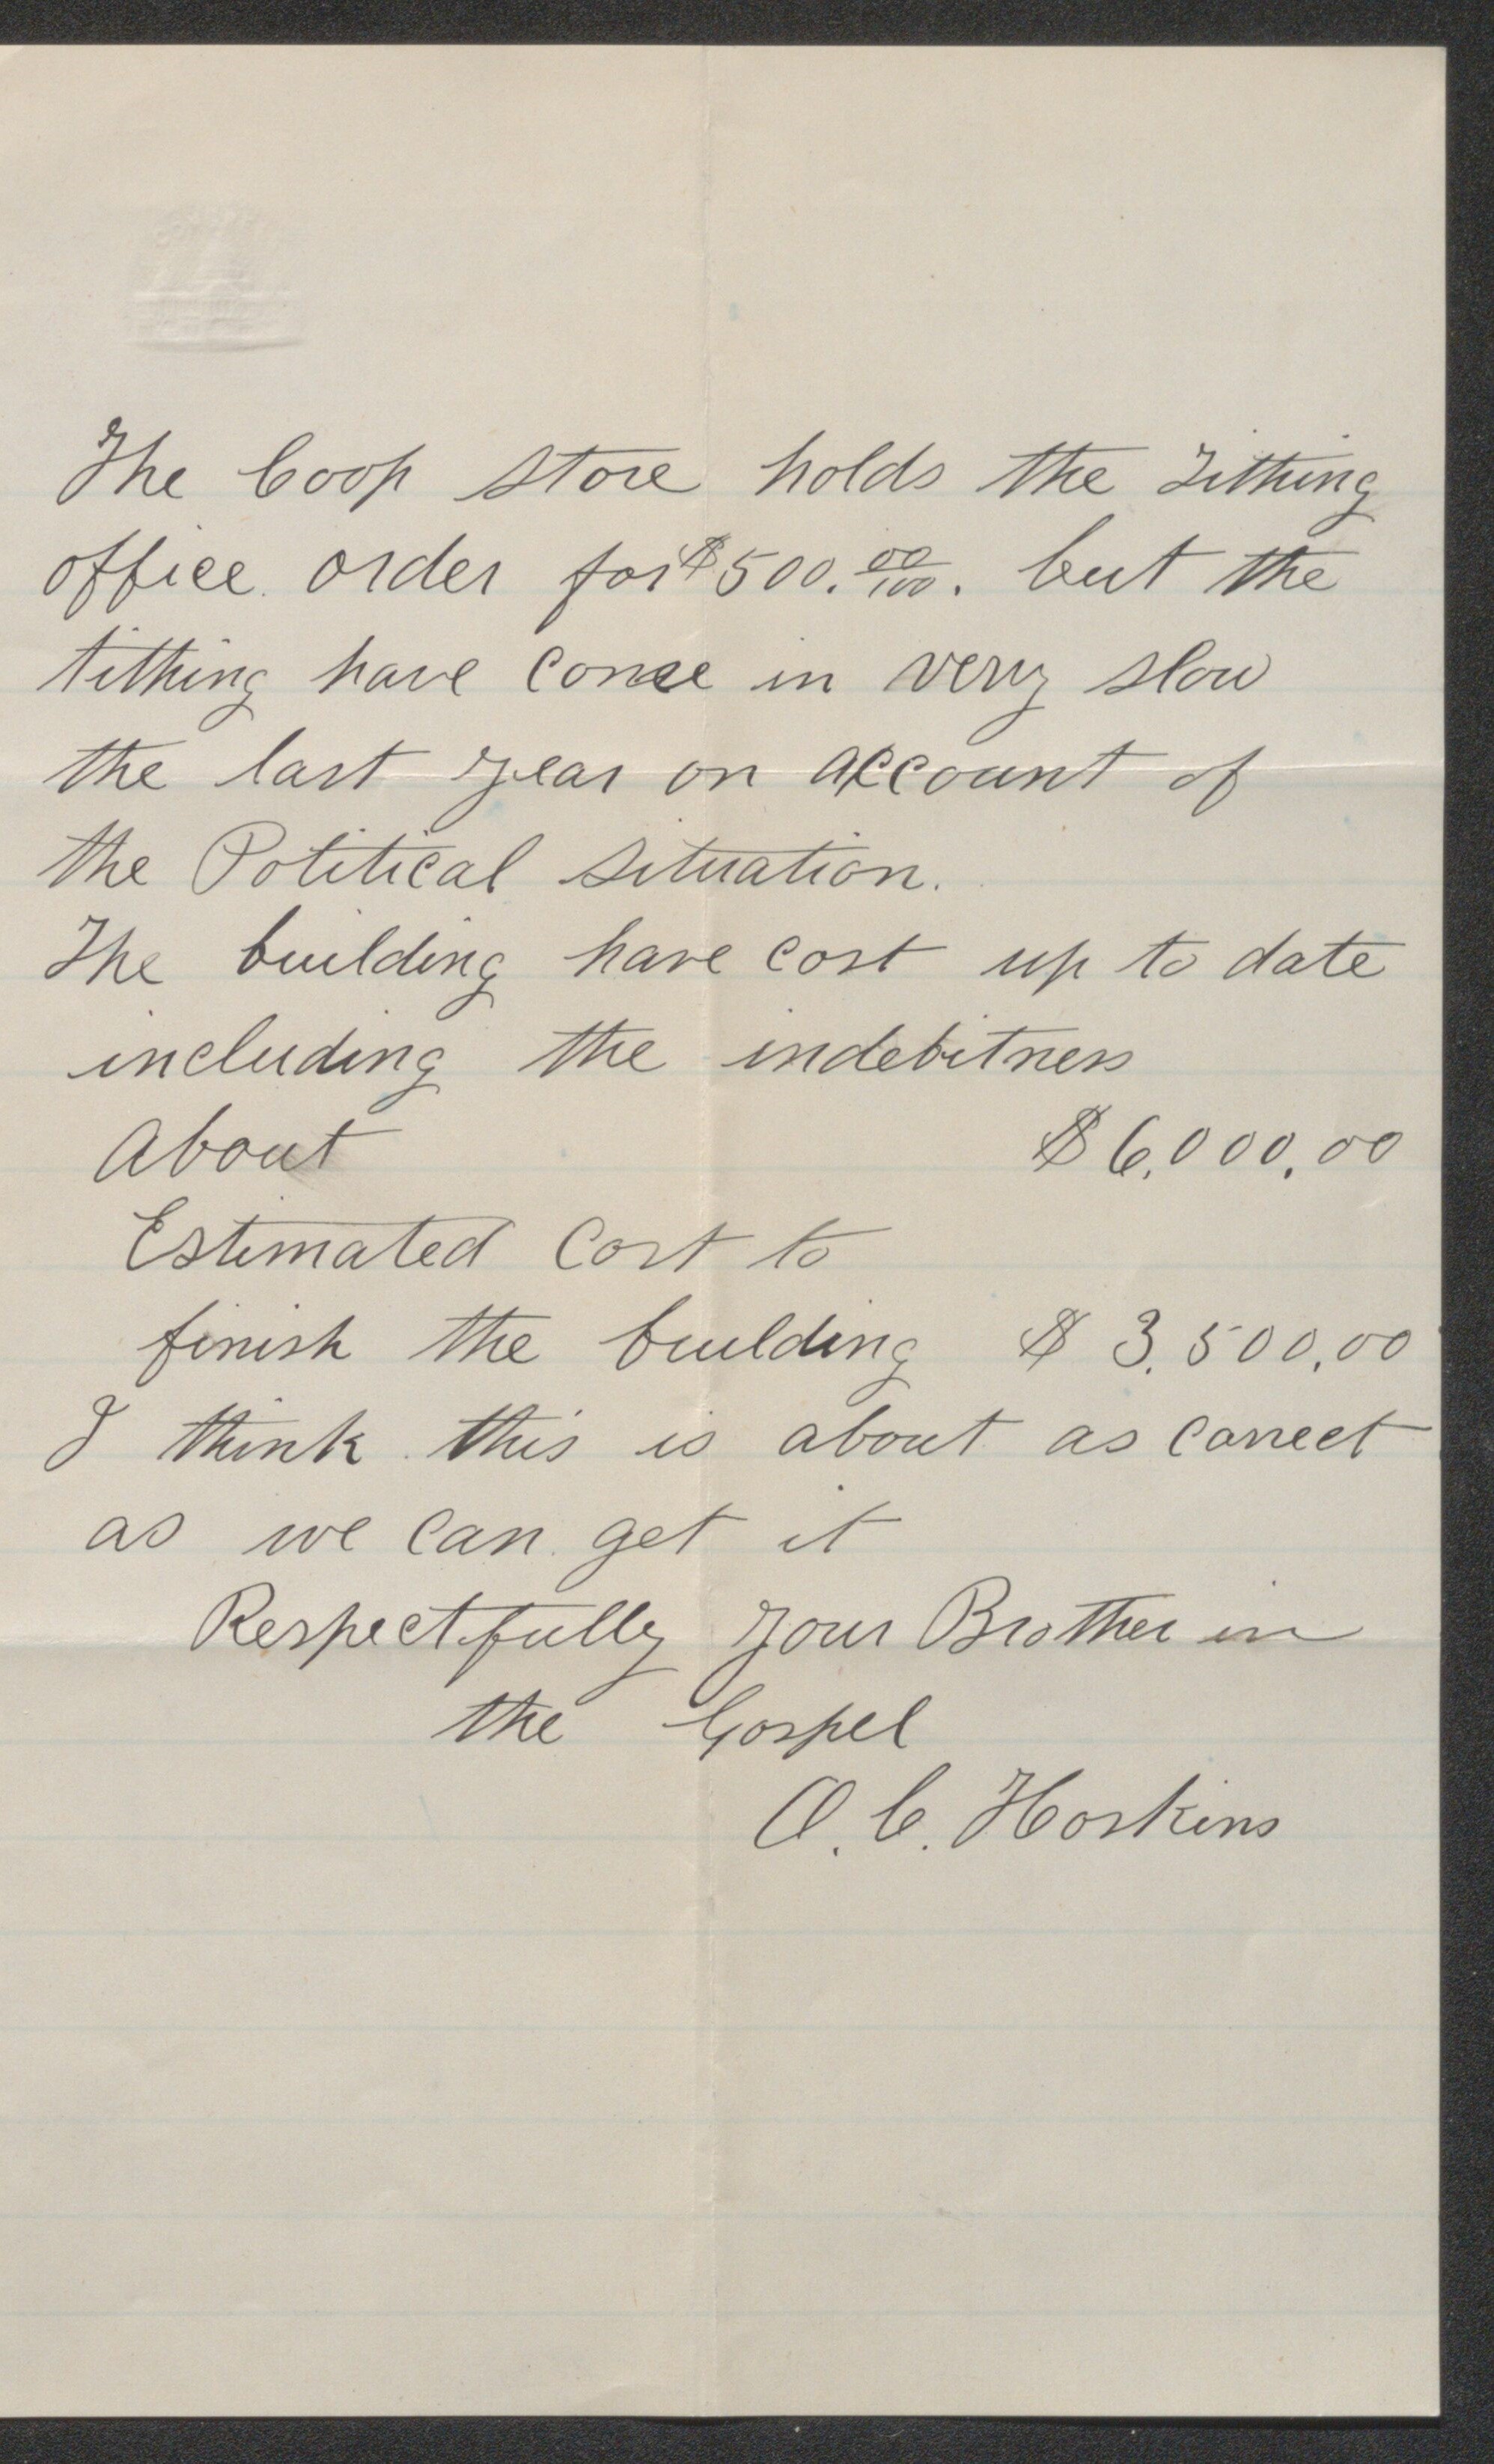 The Coop store holds the Tithing
office order for $500. 00/100. but the
tithing have come in very slow
the last year on account of
the Political situation.
The building have cost up to date
including the indebitness
About $6,000,00
Estimated Cost to
finish the building $3,500,00
I think this is about as correct
as we can get it
Respectfully your Brother in
the Gospel
A. C. Hoskins